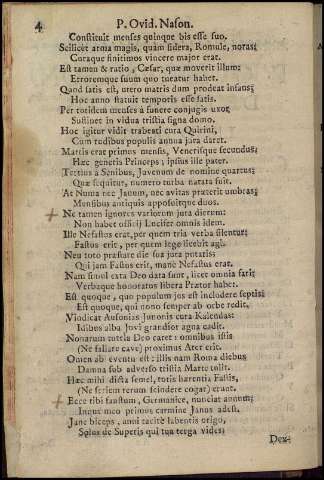 4 P. Ovid. Nason.
Constituit menses quinque bis esse suo.
Scilicet arma magis, quàm sidera, Romule, noras;
Curaque finitimos vincere major erat.
Est tamen & ratio, Cæsar, quæ moverit illum;
Erroremque suum quo tueatur habet.
Quod satis est, utero matris dum prodeat infans;
Hoc anno statuit temporis esse satis.
Per totidem menses à funere conjugis uxor
Sustinet in vidua tristia signa domo.
Hoc igitur vidit trabeati cura Quirini,
Cum rudibus populis annua jura daret.
Martis erat primus mensis, Venerisque secundus;
Hæc generis Princeps; ipsius ille pater.
Tertius à Senibus, Juvenum de nomine quartus;
Quæ sequitur, numero turba notata fuit.
At Numa nec Janum, nec avitas præterit umbras;
Mensibus antiquis apposuitque duos.
Ne tamen ignores variorum jura dierum:
Non habet officij Lucifer omnis idem.
Ille Nefastus erat, per quem tria verba silentur:
Fastus erit, per quem lege licebit agi.
Neu toto præstare die sua jura putaris:
Qui jam Fastus erit, mane Nefastus erat.
Nam simul exta Deo data sunt, licet omnia fari;
Verbaque honoratus libera Prætor habet.
Est quoque, quo populum jus est includere septis;
Est quoque, qui nono semper ab orbe redit.
Vindicat Ausonias Junonis cura Kalendas:
Idibus alba Jovi grandior agna cadit.
Nonarum tutela Deo caret: omnibus istis
(Ne fallare cave) proximus Ater erit.
Omen ab eventu est: illis nam Roma diebus
Damna sub adverso tristia Marte tulit.
Hæc mihi dicta semel, totis hærentia Fastis,
(Ne seriem rerum scindere cogar) erunt.
Ecce tibi faustum, Germanice, nunciat annum;
Inque meo primus carmine Janus adest.
Jane biceps, anni tacitè labentis origo,
Solus de Superis qui tua terga vides;
Dex-